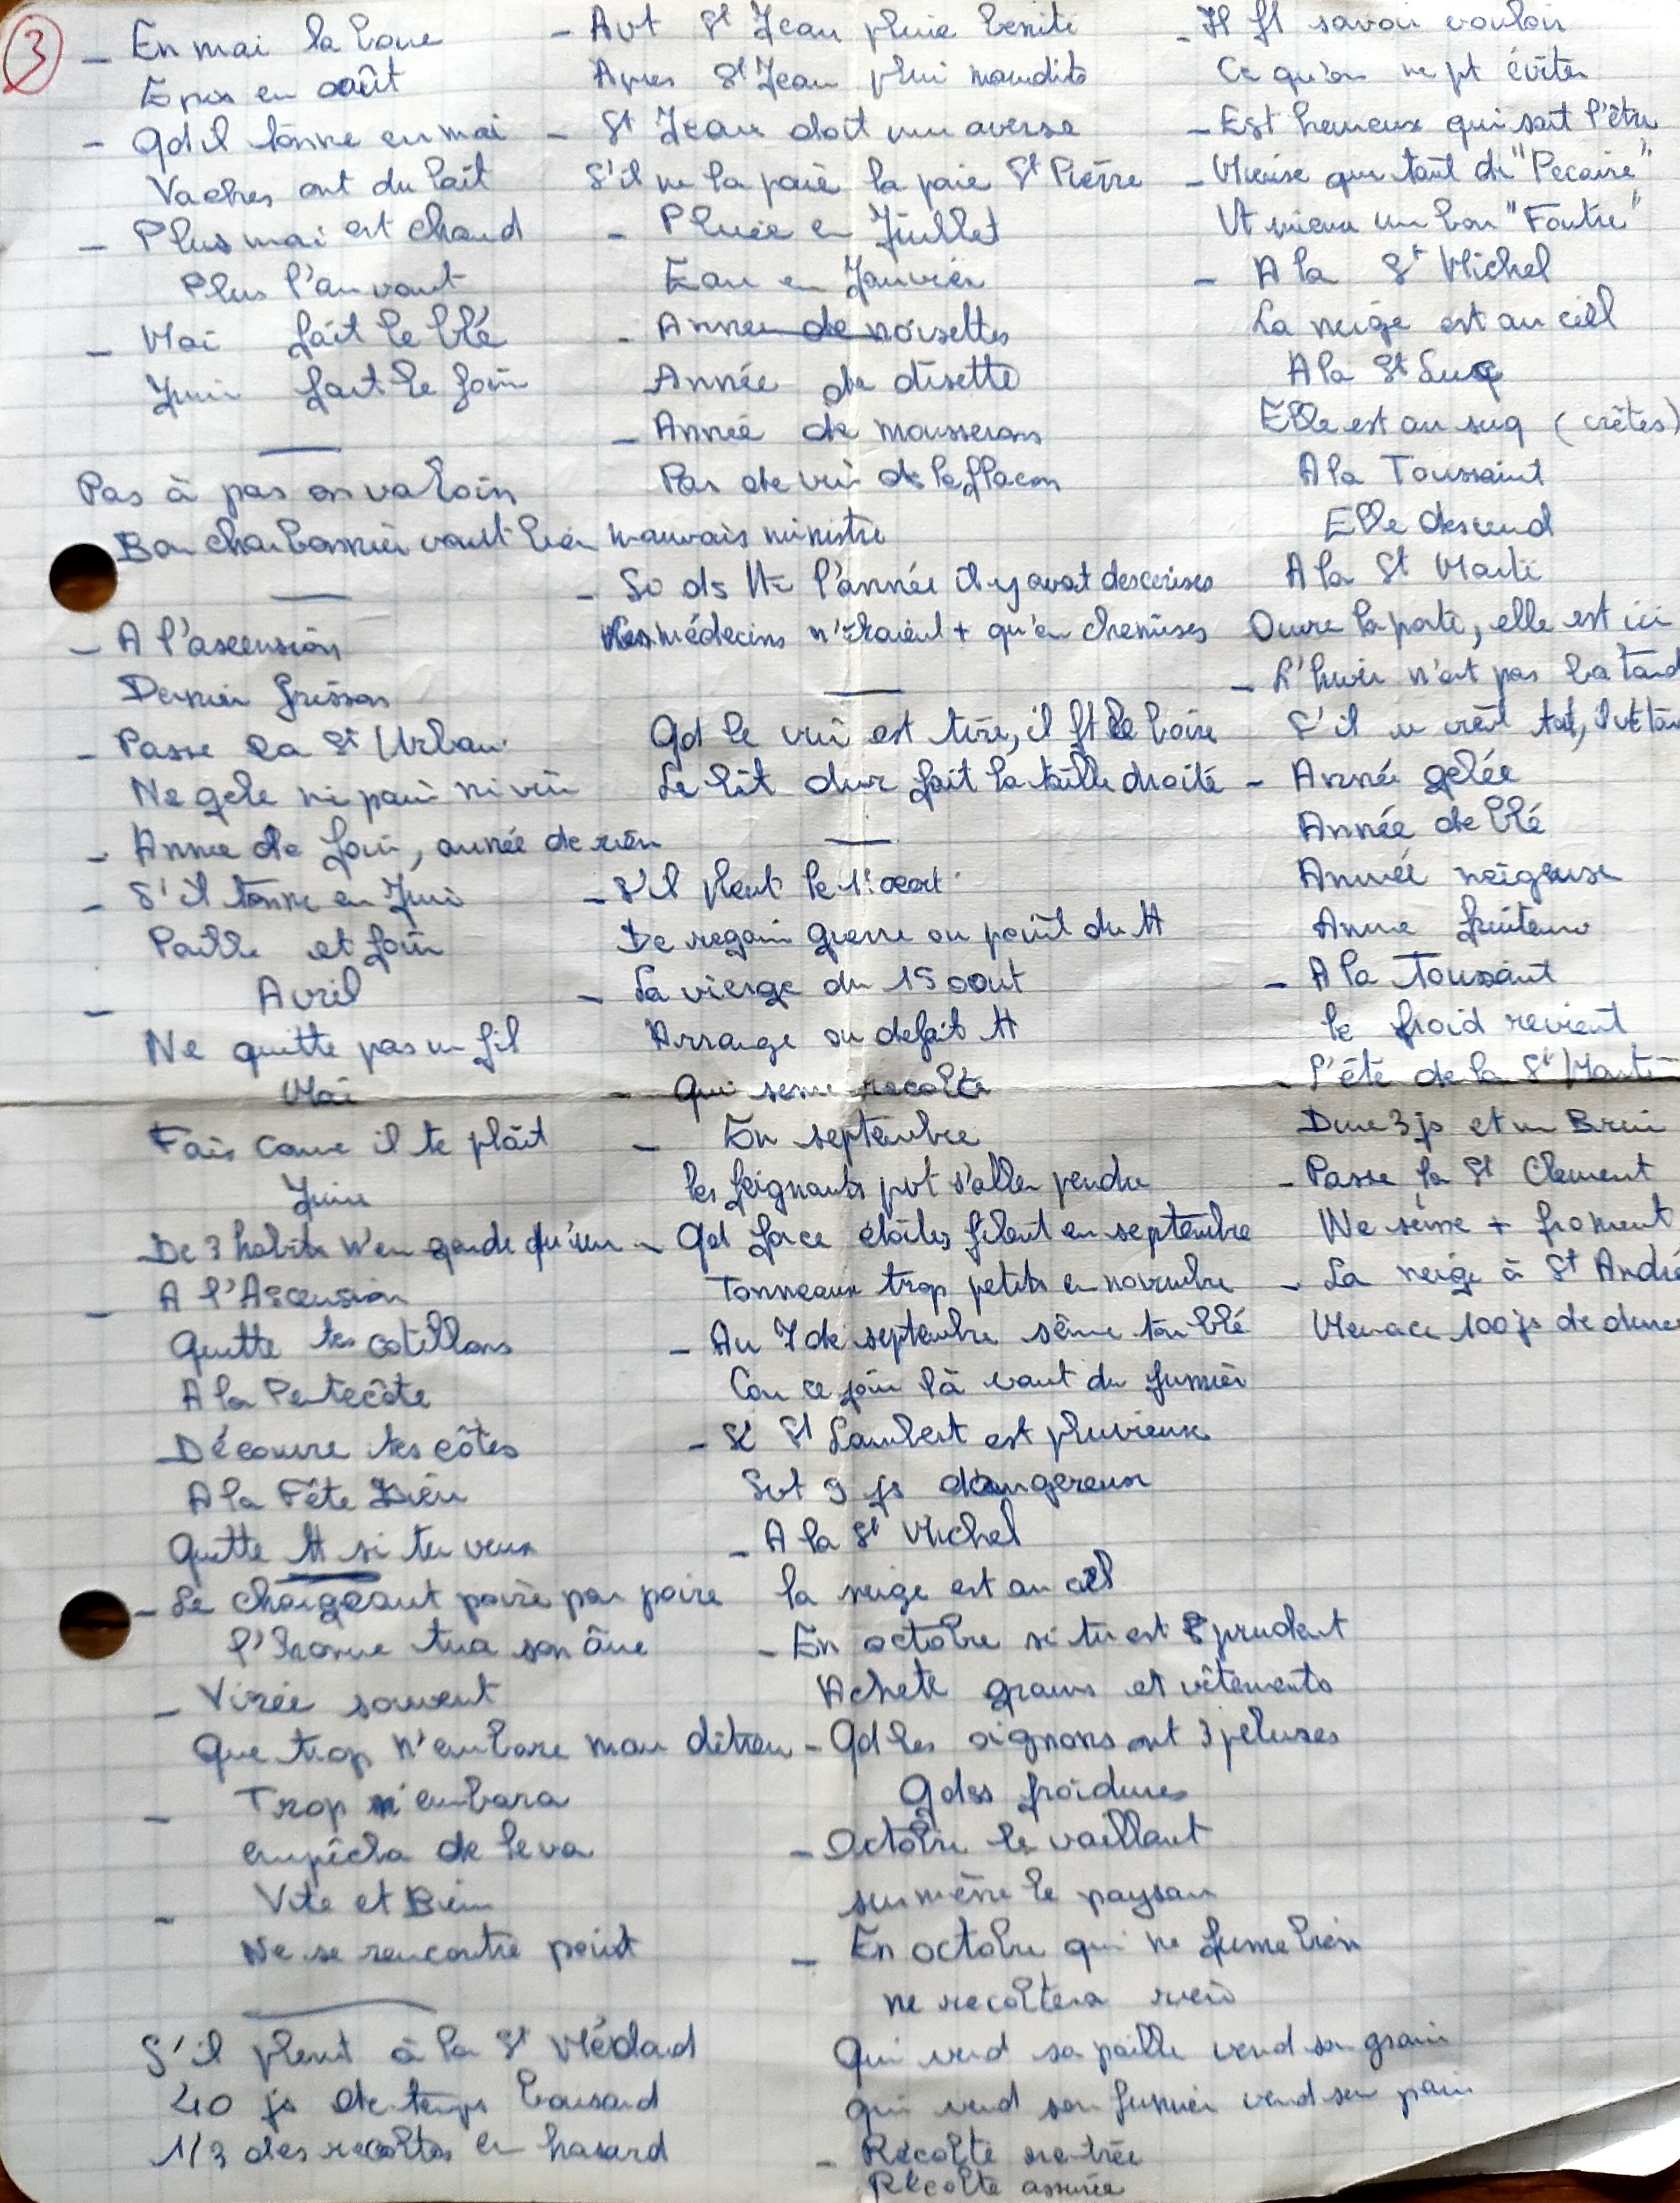 3
- En mai la boue
Epis en août
- Qd il tonne en mai
Vaches ont du lait
- Plus mai est chaud
Plus l'an vaut
- Mai fait le blé
Juin fait le foin
Pas à pas on va loin
Bon charbonnier vaut bien mauvais ministre
- A l'ascension
Dernier frisson
- Passe la St Urbain
Ne gele ni pain ni vin
- Annee de foin, année de rien
- S'il tonne en Juin
Paille et foin
- Avril
Ne quitte pas un fil
Mai
Fais come il te plait
Juin
De 3 habits n'en garde qu'un
- A l'Ascension
Quitte tes cotillons
A la Pentecôte
Découvre tes côtes
A la Fête Dieu
Quitte tt si tu veux
- Se chargeant poire par poire
l'home tua son âne
- Virée souvent
Que trop n'embare
- Trop n'embara
empêcha de leva
- Vite et Bien
Ne se rencontre point
S'il pleut à la St Médard
40 js de temps bousard
1/3 des recoltes en hasard
- Avt St Jean pluie benite
Apres St Jean pluie maudite
- St Jean doit une averse
S'il ne la paie la paie St Pierre
- Pluie en Juillet
Eau en Janvier
- Annee de noisettes
Année de disette
- Année de mousserons
Pas de vin ds le flacon
- So ds tte l'année il y avait des cerises
les médecins n'iraient + qu'en chemises
Qd le vin est tiré, il ft le boire
Le lit dur fait la taille droite
- S'il pleut le 1er aout
De regain guerre ou point du tt
- La vierge du 15 aout
Arrange ou defait tt
- Qui seme recolte
- En septembre
les feignants pvt s'aller pendre
- Qd force étoiles filent en septembre
Tonneaux trop petits en novembre
- Au 7 de septembre sème ton blé
Car ce jour là vaut du fumier
- Si St Lambert est pluvieux
Svt 9 js dangereux
- A la St Michel
la neige est au ciel
- En octobre si tu est prudent
Achete grains et vêtements
- Qd les oignons ont 3 pelures
Gdes froidures
- Octobre le vaillant
surmène le paysan
- En octobre qui ne fume bien
ne recoltera rien
Qui vend sa paille vend son grain
qui vend son fumier vend son pain
- Récolte rentrée
Récolte assurée
- Il ft savoir vouloir
Ce qu'on ne pt éviter
- Est heureux qui sait l'être
- Mieux que tant de "Pecaire"
Vt mieux un bon "Foutre"
- A la St Michel
La neige est au ciel
A la St Luc
Elle est au suq (crêtes)
A la Toussaint
Elle descend
A la St Martin
Ouvre la porte, elle est ici
- L'hiver n'est pas batard
S'il ne vient tot, il vt tard
- Année gelée
Année de blé
Année neigeuse
Annee fruiteuse
- A la Toussaint
le froid revient
- L'été de la St Martin
Dure 3 js et un Brin
- Passe la St Clement
Ne sème + froment
- La neige à St André
Menace 100 js de durée